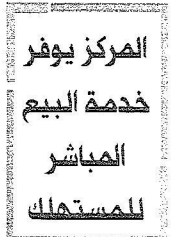 المركز يوفر
خدمة البيع
المباشر
للمستهلك